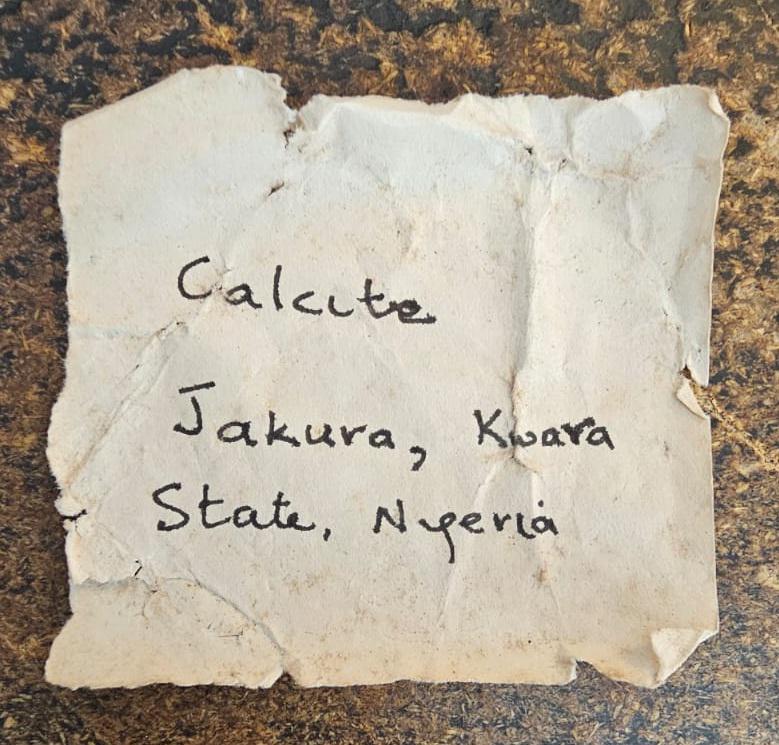 Calcite
Jakura, Kwara
State, Nigeria